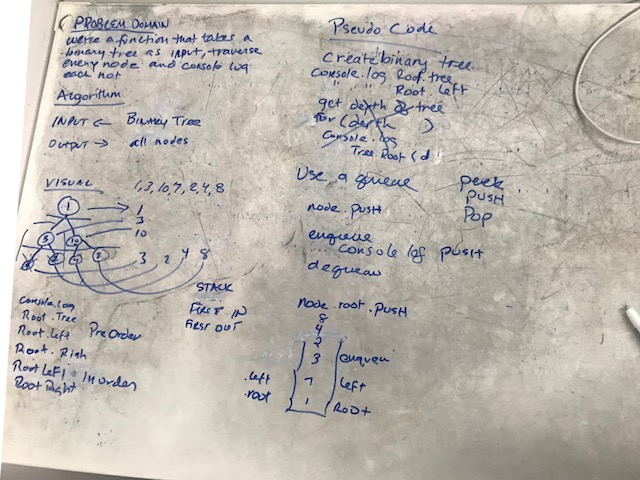 PROBLEM DOMAIN
write a function that takes a
binary tree as INPUT, traverse
every node and console log
each not
Algorithm
INPUT <- BINARY TREE
OUTPUT -> all nodes
VISUAL 1,3,10,7,2,4,8
1 1
3
10
3 2 4 8
STACK
FIRST IN
FIRST OUT
Console.log
Root.Tree
Root.left PreOrder
Root.Righ
Root Left InOrder
Root Right
Pseudo Code
Create binary tree
Console.log Root.tree
Root.left
get depth of tree
for (depth )
Console.log
Tree.Root(d
Use a queue peek
PUSH
node.PUSH Pop
enqueue
... Console log PUSH
dequeau
Node.root.PUSH
8
4
2
3 enqueu
.left 7 left
.root 1 Root